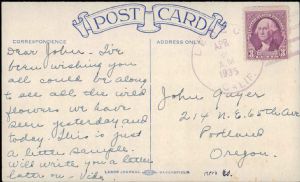 POST CARD
CORRESPONDENCE
ADDRESS ONLY
Dear John - I've
been wishing you
all could be along
to see all the wild
flowers we have
seen yesterday and
today. This is just
a little sample.
Will write you a letter
later on -
APR
A M
1935
3 CENTS 3
John Geyer
214 N.E. 65th Ave
Portland
Oregon.